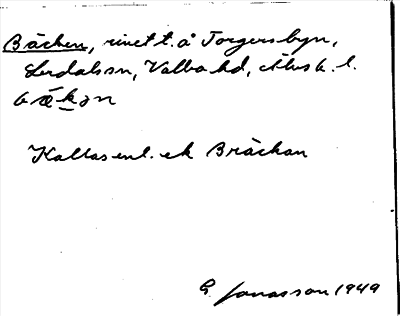 Bäcken, rinet t. å Torgersbyn,
Lerdals sn, Valbo hd, Älvsb. l.
bæ̀kən
Kallas enl. ek Bräckan
G. Jonasson 1949